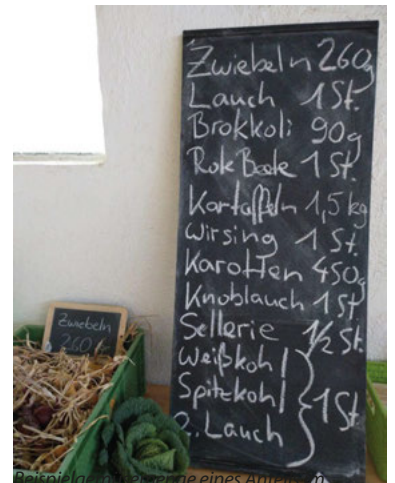 Zwiebeln 260g
Lauch 1 St.
Brokkoli 90g
Rote Beete 1 St.
Kartoffeln 1,5 kg
Wirsing 1 St.
Karotten 450g
Knoblauch 1 St
Sellerie 1/2 St.
Weißkohl
Spitzkohl 1 St
o. Lauch
Zwiebeln
260g